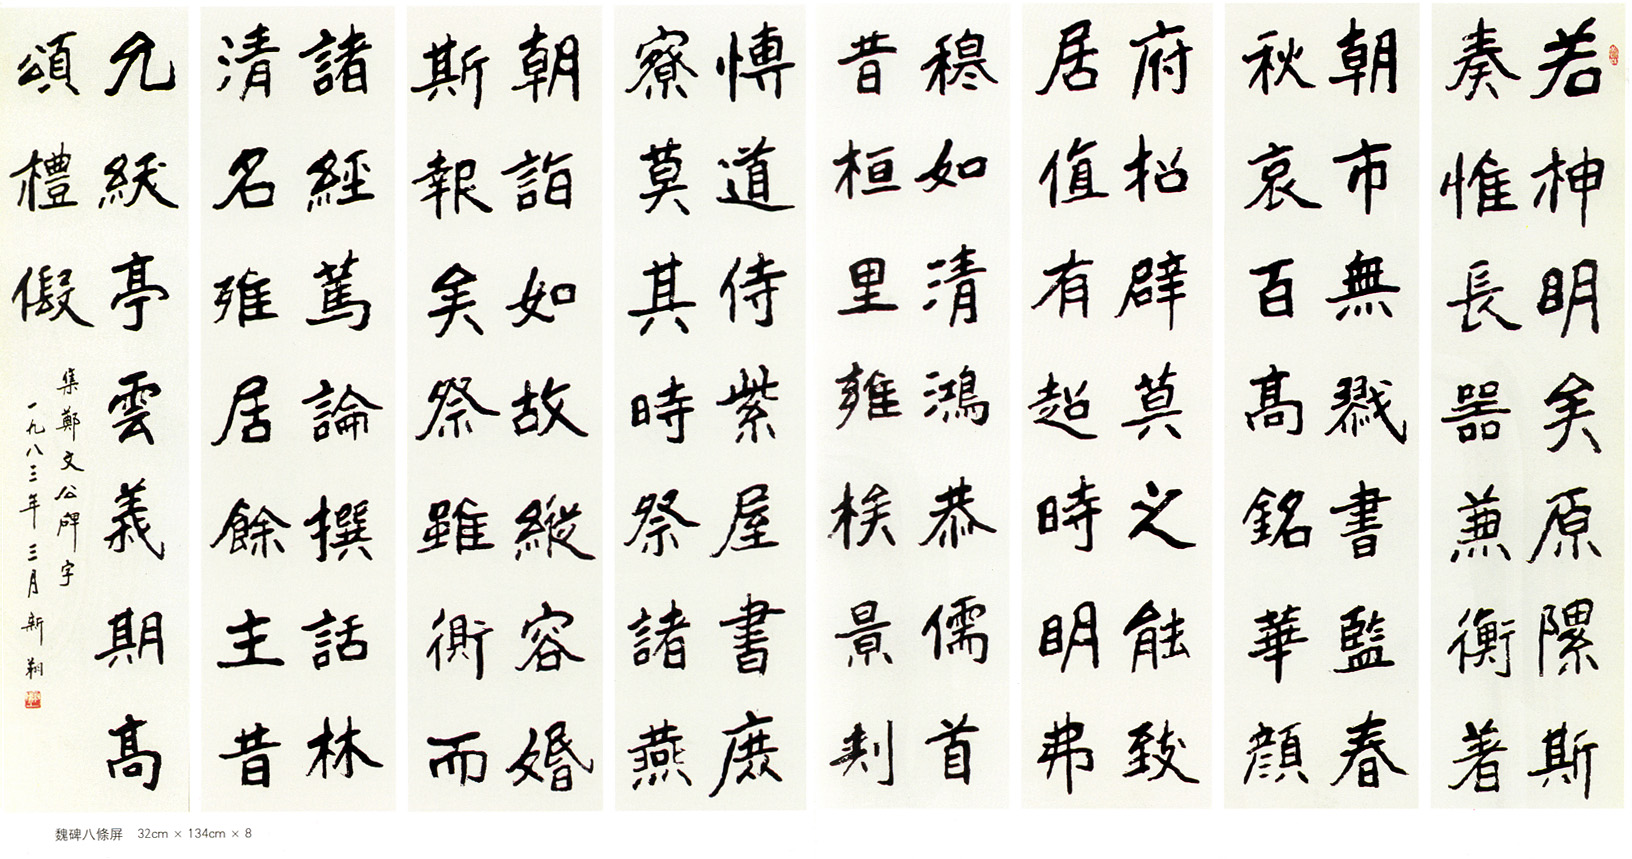 若神明矣原隰斯
奏惟長器兼衡著
朝市無戮書監春
秋哀百高銘華顏
府招辟莫之能致
居值有超時明弗
穆如清鴻恭儒首
昔桓里雍榘景刾
愽道侍紫屋書庶
寮莫其時祭諸燕
朝詣如故縱容婚
斯報矣祭雖衡而
諸經萬論撰話林
清名雍居餘主昔
九綏亭雲義期高
頌禮假
集鄭文公碑字
一九八三年三月新翔
魏碑八條屏 32cm × 134cm × 8